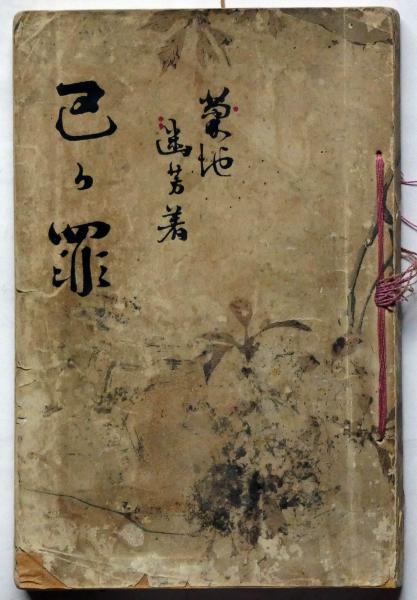 菊池
幽芳著
己か罪